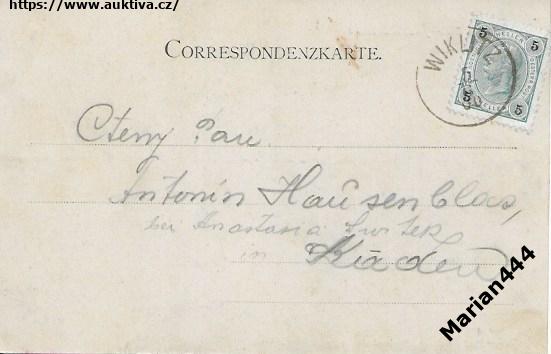 https://www.auktiva.cz/
CORRESPONDENZKARTE.
WIKLITZ
5 5
5 5
Cteny Pan
Antonín Hausenblas,
bei Anastasia
in Kaaden
Marian444